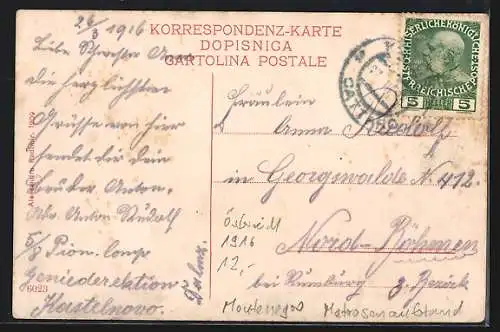 26/3 1916
KORRESPONDENZ-KARTE
DOPISNICA
CARTOLINA POSTALE
Liebe Schwester Anna
die herzlichsten
Grüsse von hier
sendet dir dein
bruder Anton.
Adr. Anton Rudolf
5/3 Pion. Comp
Geniedirektion
Kastelnovo.
6023
Fräulein
Anna Rudolf
in Georgswalde N. 412.
Nord-Böhmen
bei Rumburg
Österreich
1916
12,-
Montenegro Matrosenaufstand
KAISERLICHE KÖNIGLICHE
ÖSTERREICHISCHE POST
5 5